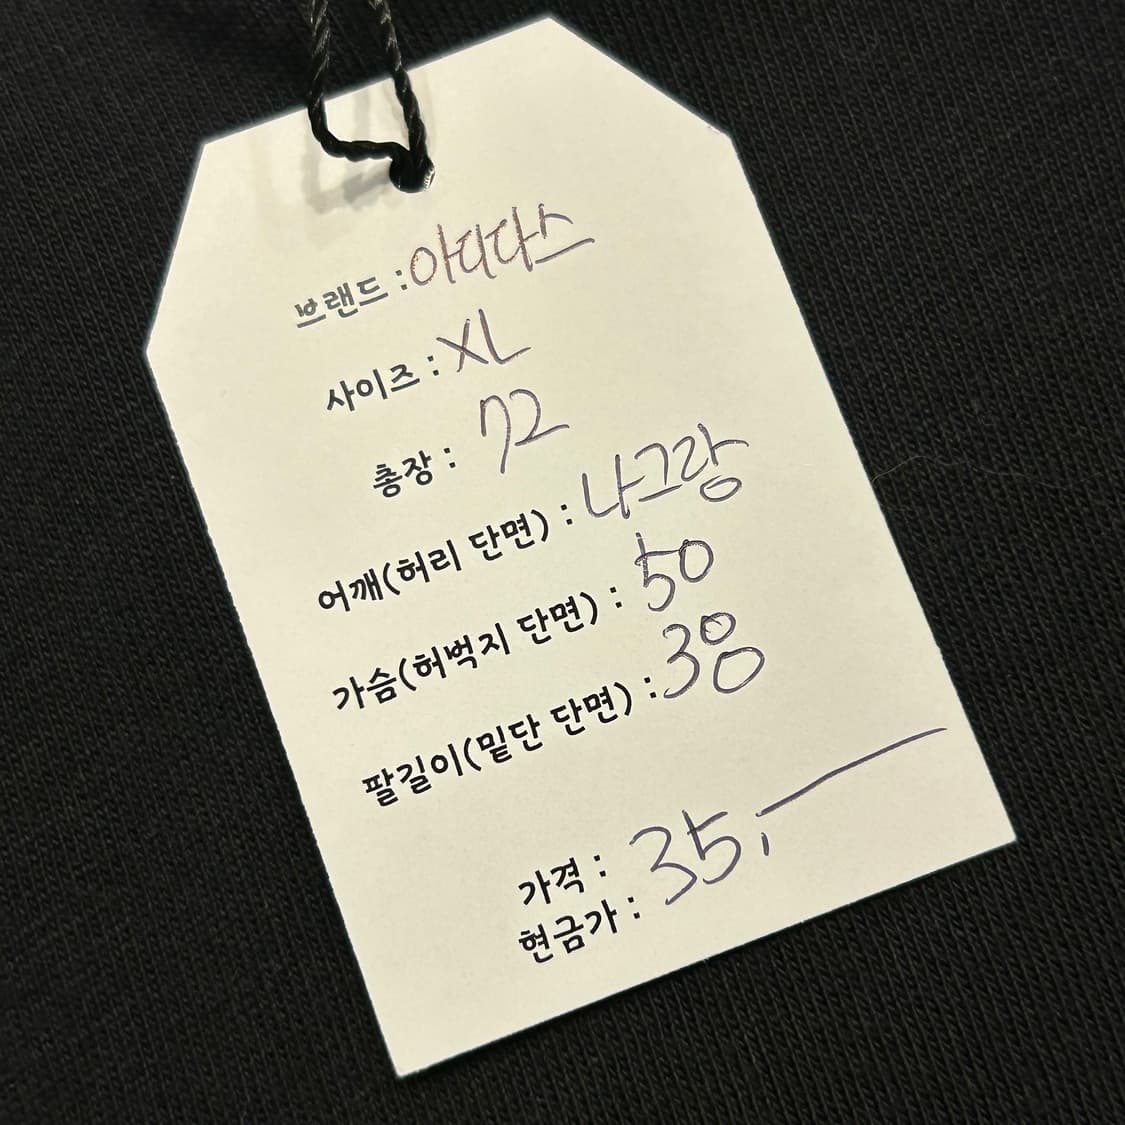 브랜드 : 아디다스
사이즈 : XL
총장 : 72
어깨(허리 단면) : 나그랑
가슴(허벅지 단면) : 50
팔길이(밑단 단면) : 38
가격 : 35,―
현금가 :